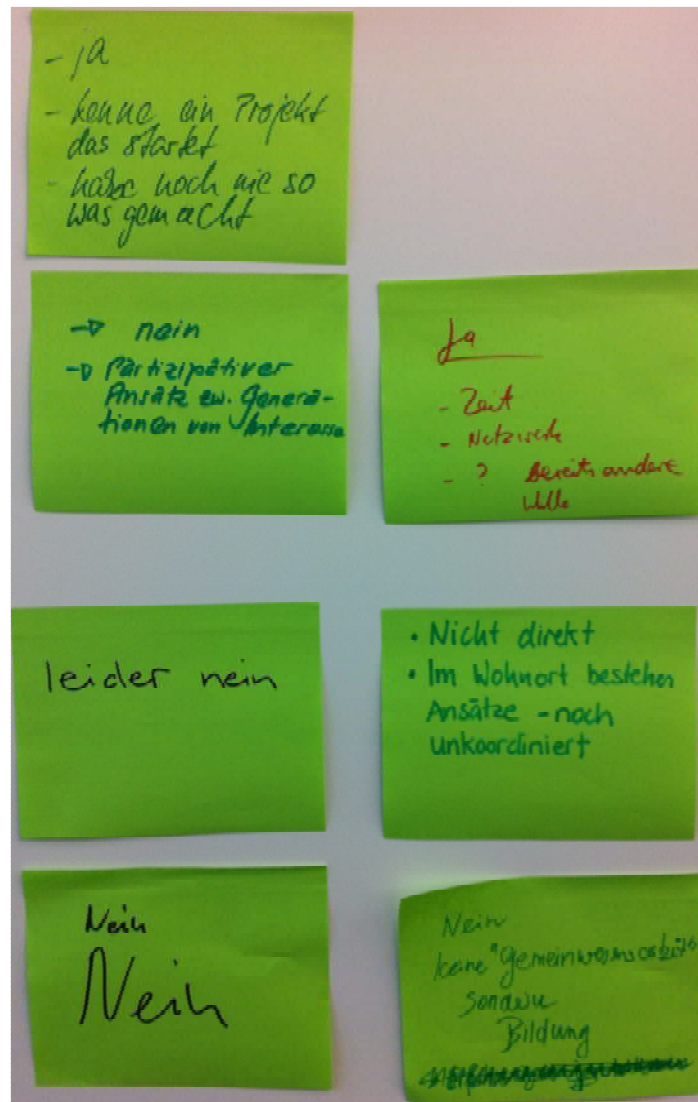 - ja
- kenne ein Projekt
das startet
- habe noch nie so
was gemacht
→ nein
→ Partizipativer
Ansatz zw. Genera-
tionen von Interesse
Ja
- Zeit
- Netzwerk
- ? Bereits andere
leider nein
• Nicht direkt
• Im Wohnort bestehen
Ansätze - noch
unkoordiniert
Nein
Nein
Nein
keine "Gemeinwesensarbeit"
sondern
Bildung